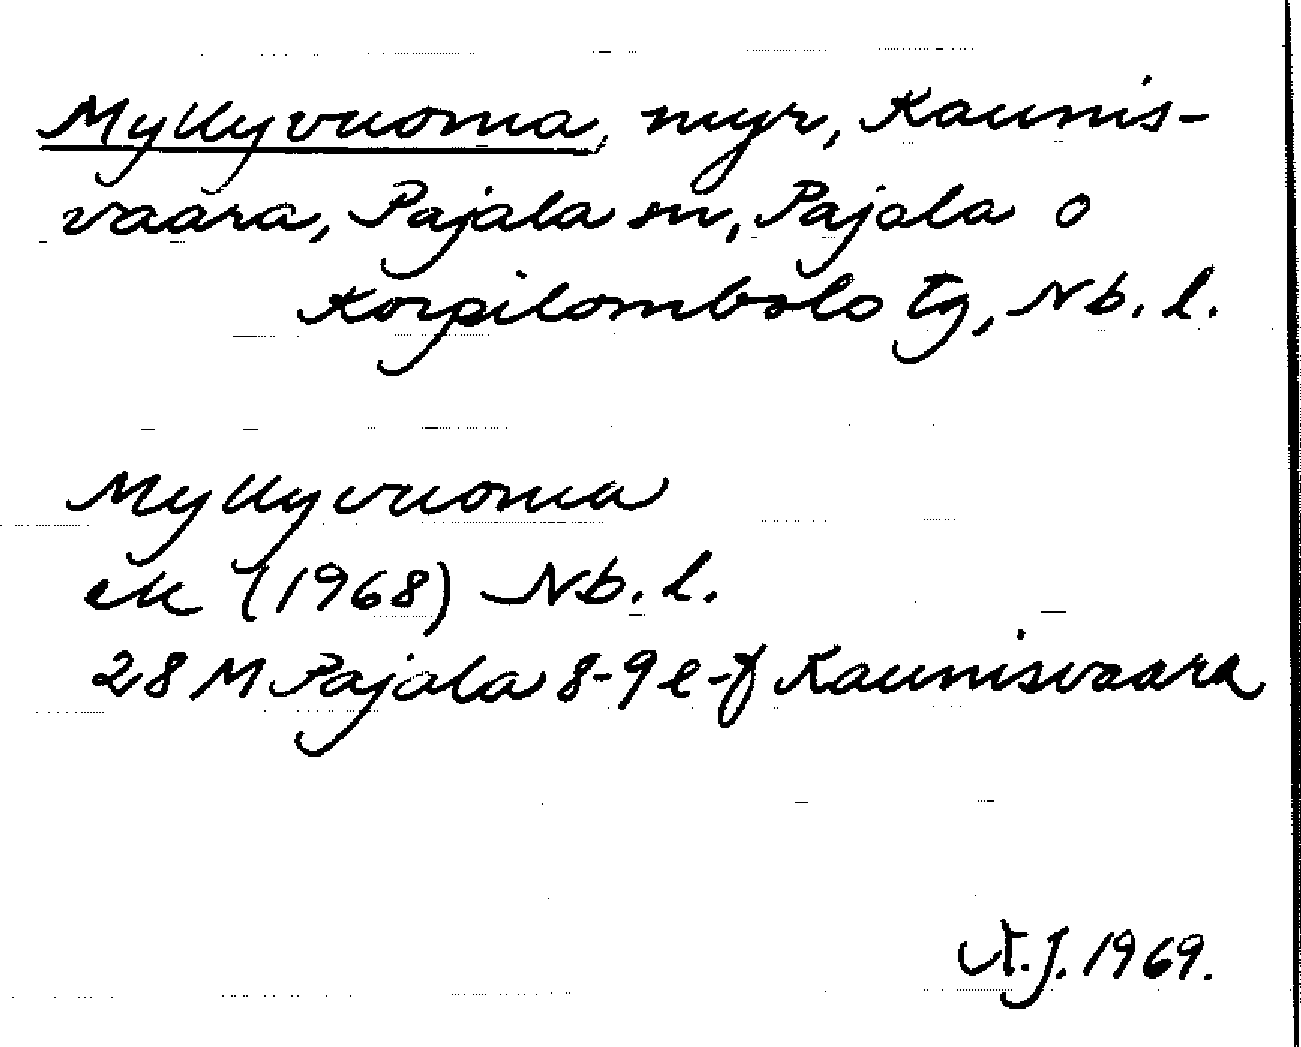 Myllyvuoma, myr, Kaunis-
vaara, Pajala sn, Pajala o
Korpilombolo tg, Nb. l.
Myllyvuoma
ek (1968) Nb. l.
28 M Pajala 8-9 e-f Kaunisvaara
A.J. 1969.